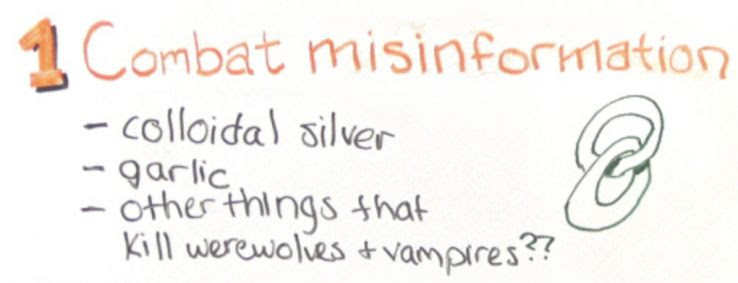 1 Combat misinformation
- colloidal silver
- garlic
- other things that
kill werewolves + vampires??